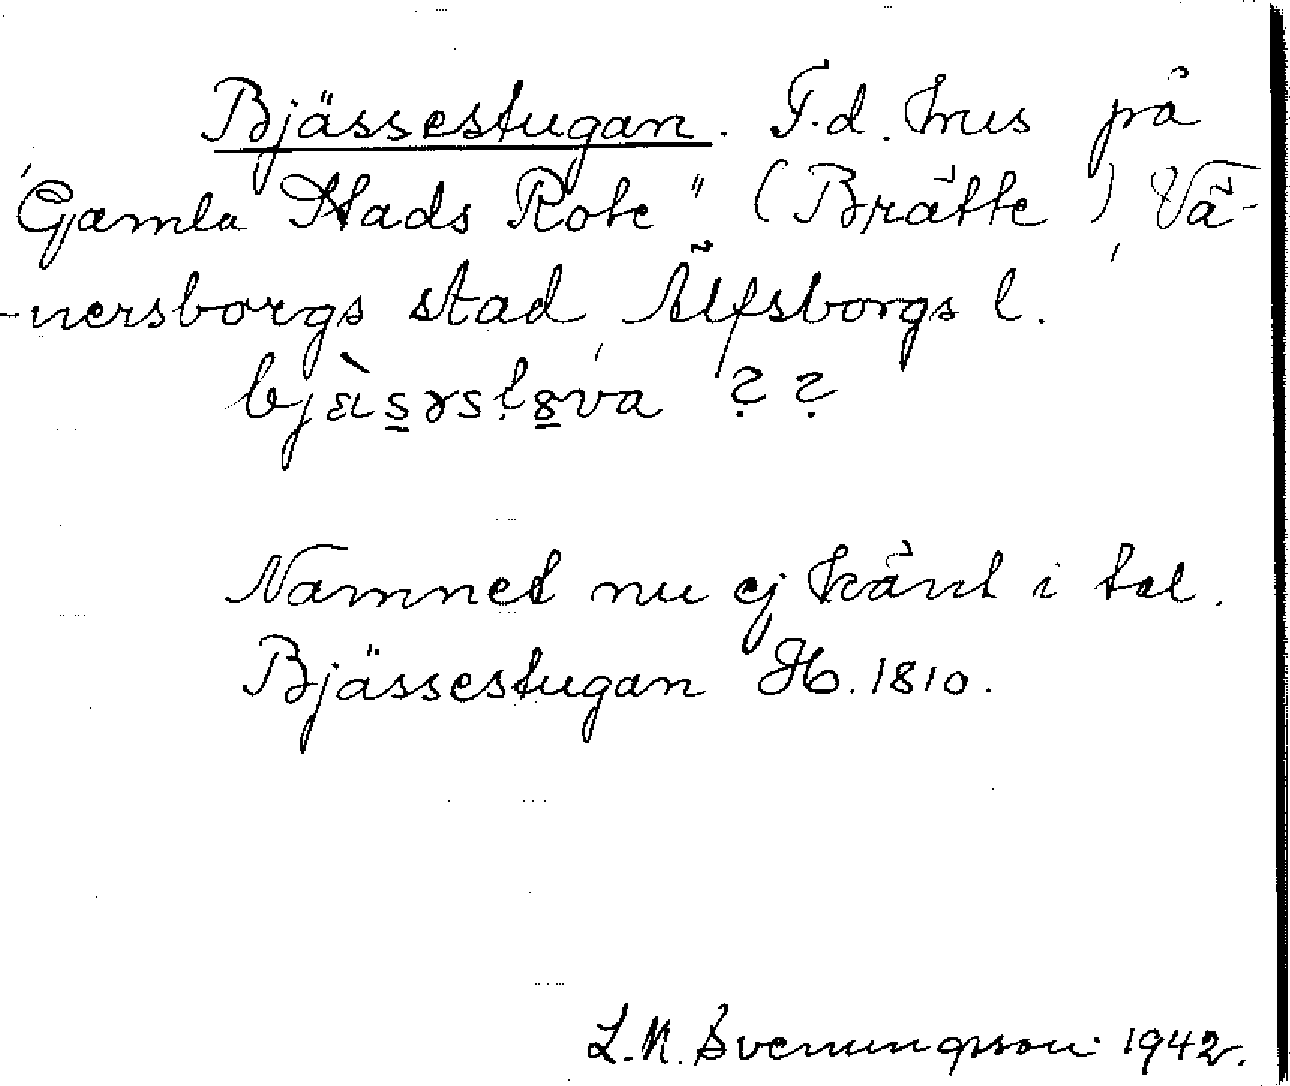 Bjässestugan. F.d. hus på
"Gamla Stads Rote" (Brätte), Vä-
-nersborgs stad, Älfsborgs l.
??
Namnet nu ej känt i tal.
Bjässestugan Hb. 1810.
L.N. Svenungsson 1942.